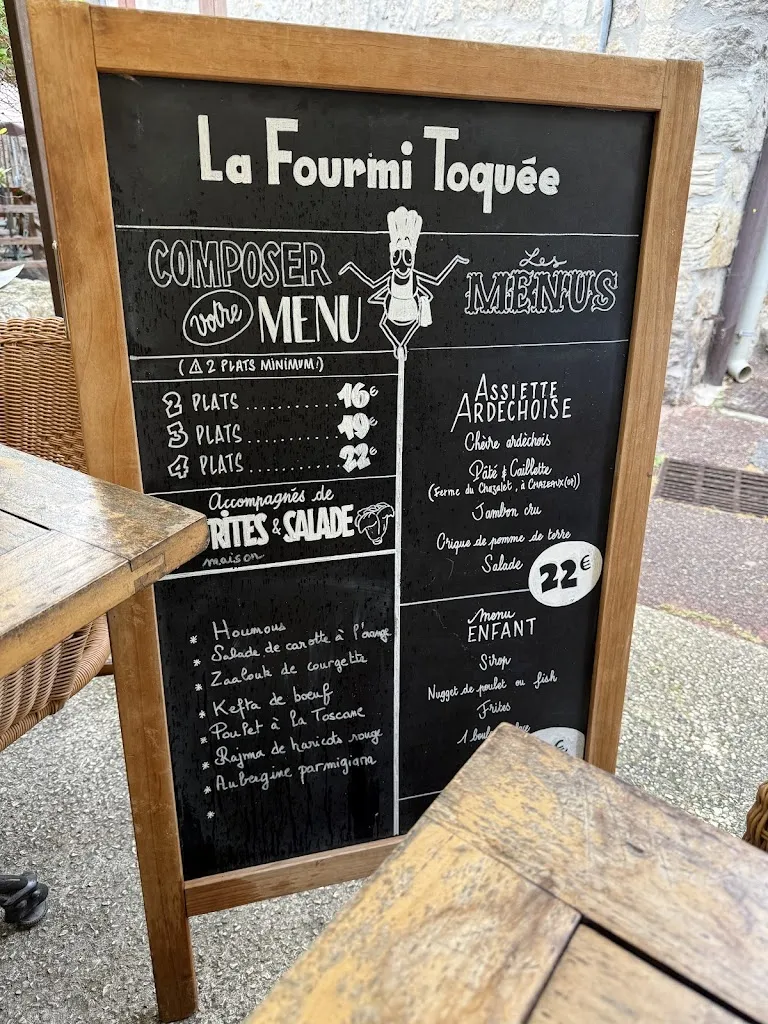 La Fourmi Toquée
COMPOSER
votre MENU
(⚠ 2 PLATS MINIMUM!)
2 PLATS .............. 16€
3 PLATS .............. 19€
4 PLATS .............. 22€
Accompagnés de
RITES & SALADE
maison
* Houmous
* Salade de carotte à l'orange
* Zaalouk de courgette
* Kefta de boeuf
* Poulet à la Toscane
* Rajma de haricots rouge
* Aubergine parmigiana
*
Les
MENUS
ASSIETTE
ARDÉCHOISE
Chèvre ardèchois
Pâté & Caillette
(Ferme du Chazalet, à CHAZEAUX(07))
Jambon cru
Crique de pomme de terre
Salade
22€
menu
ENFANT
Sirop
Nugget de poulet ou fish
Frites
1 boul